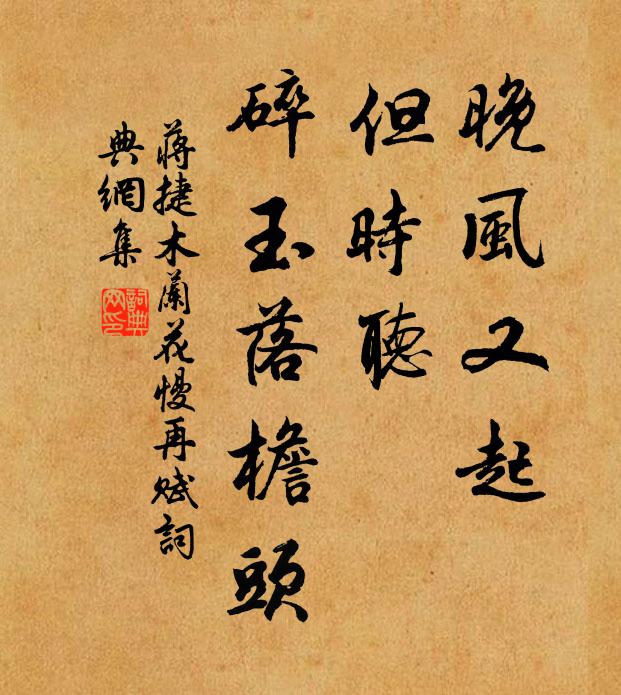 晚風又起
但時聽
碎玉落檐頭
蔣捷木蘭花慢再賦詞
典網集
詞典
网印